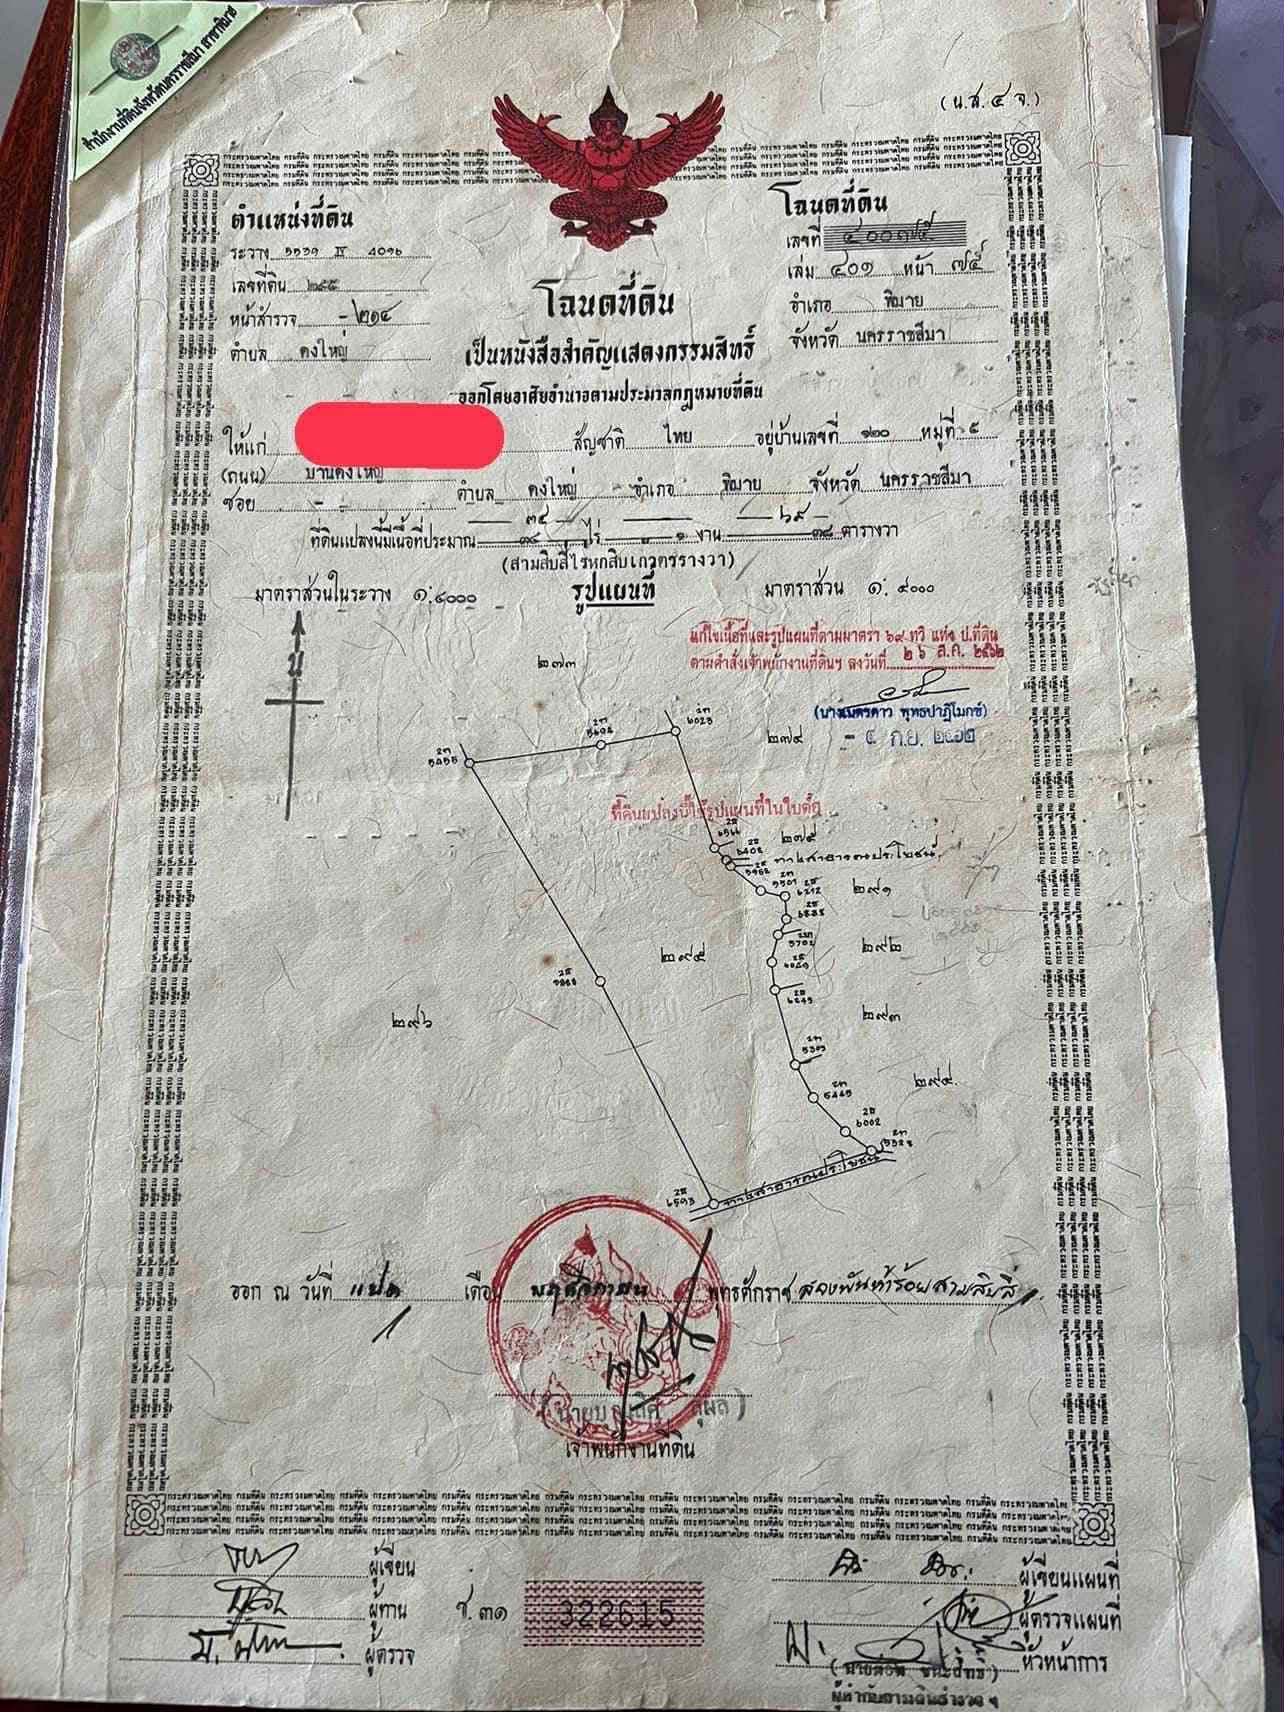 สำนักงานที่ดินจังหวัดนครราชสีมา สาขาพิมาย
(น.ส.๔ จ.)
ตำแหน่งที่ดิน
ระวาง 5539 IV 4096
เลขที่ดิน ๒๙๕
หน้าสำรวจ - ๒๑๔
ตำบล ดงใหญ่
โฉนดที่ดิน
เลขที่ ๔๐๐๗๕
เล่ม ๔๐๑ หน้า ๗๕
อำเภอ พิมาย
จังหวัด นครราชสีมา
โฉนดที่ดิน
เป็นหนังสือสำคัญแสดงกรรมสิทธิ์
ออกโดยอาศัยอำนาจตามประมวลกฎหมายที่ดิน
ให้แก่ สัญชาติ ไทย อยู่บ้านเลขที่ ๑๒๐ หมู่ที่ ๕
(ถนน) บ้านดงใหญ่
ซอย - ตำบล ดงใหญ่ อำเภอ พิมาย จังหวัด นครราชสีมา
๓๔ - ๖๙
ที่ดินแปลงนี้มีเนื้อที่ประมาณ ไร่ ๑ งาน ๓๘ ตารางวา
(สามสิบสี่ไร่หกสิบเก้าตารางวา)
มาตราส่วนในระวาง ๑:๔๐๐๐ รูปแผนที่ มาตราส่วน ๑:๔๐๐๐
น
แก้ไขเนื้อที่และรูปแผนที่ตามมาตรา ๖๙ ทวิ แห่ง ป.ที่ดิน
ตามคำสั่งเจ้าพนักงานที่ดินฯ ลงวันที่ ๒๖ ส.ค. ๒๕๖๒
(นางเนตรดาว พุทธปาฏิโมกข์)
- ๔ ก.ย. ๒๕๖๒
๒๗๓
๒๗๔
ที่ดินแปลงนี้ใช้รูปแผนที่ในใบต่อ
๒๗๕
ทางสาธารณประโยชน์
๒๙๑
๒๙๒
๒๙๕
๒๙๖
๒๙๓
๒๙๔
2ท 5455
2ท 6023
2ท 5309
2ท 5449
2ส 6002
2ส 6593
ทางสาธารณประโยชน์
ออก ณ วันที่ แปด เดือน พฤศจิกายน พุทธศักราช สองพันห้าร้อยสามสิบสี่
เจ้าพนักงานที่ดิน
ผู้เขียน
ผู้ทาน
ผู้ตรวจ
ช.๓๑
322615
ผู้เขียนแผนที่
ผู้ตรวจแผนที่
หัวหน้าการ